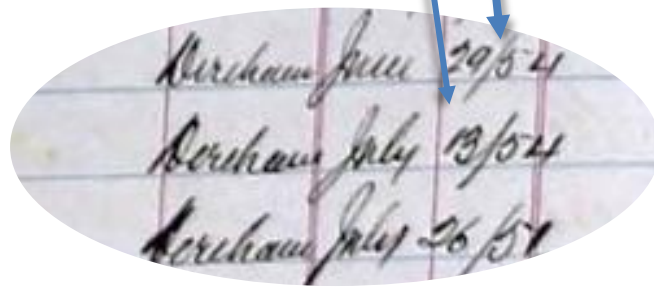 Dereham June 29/54
Dereham July 13/54
Dereham July 26/54